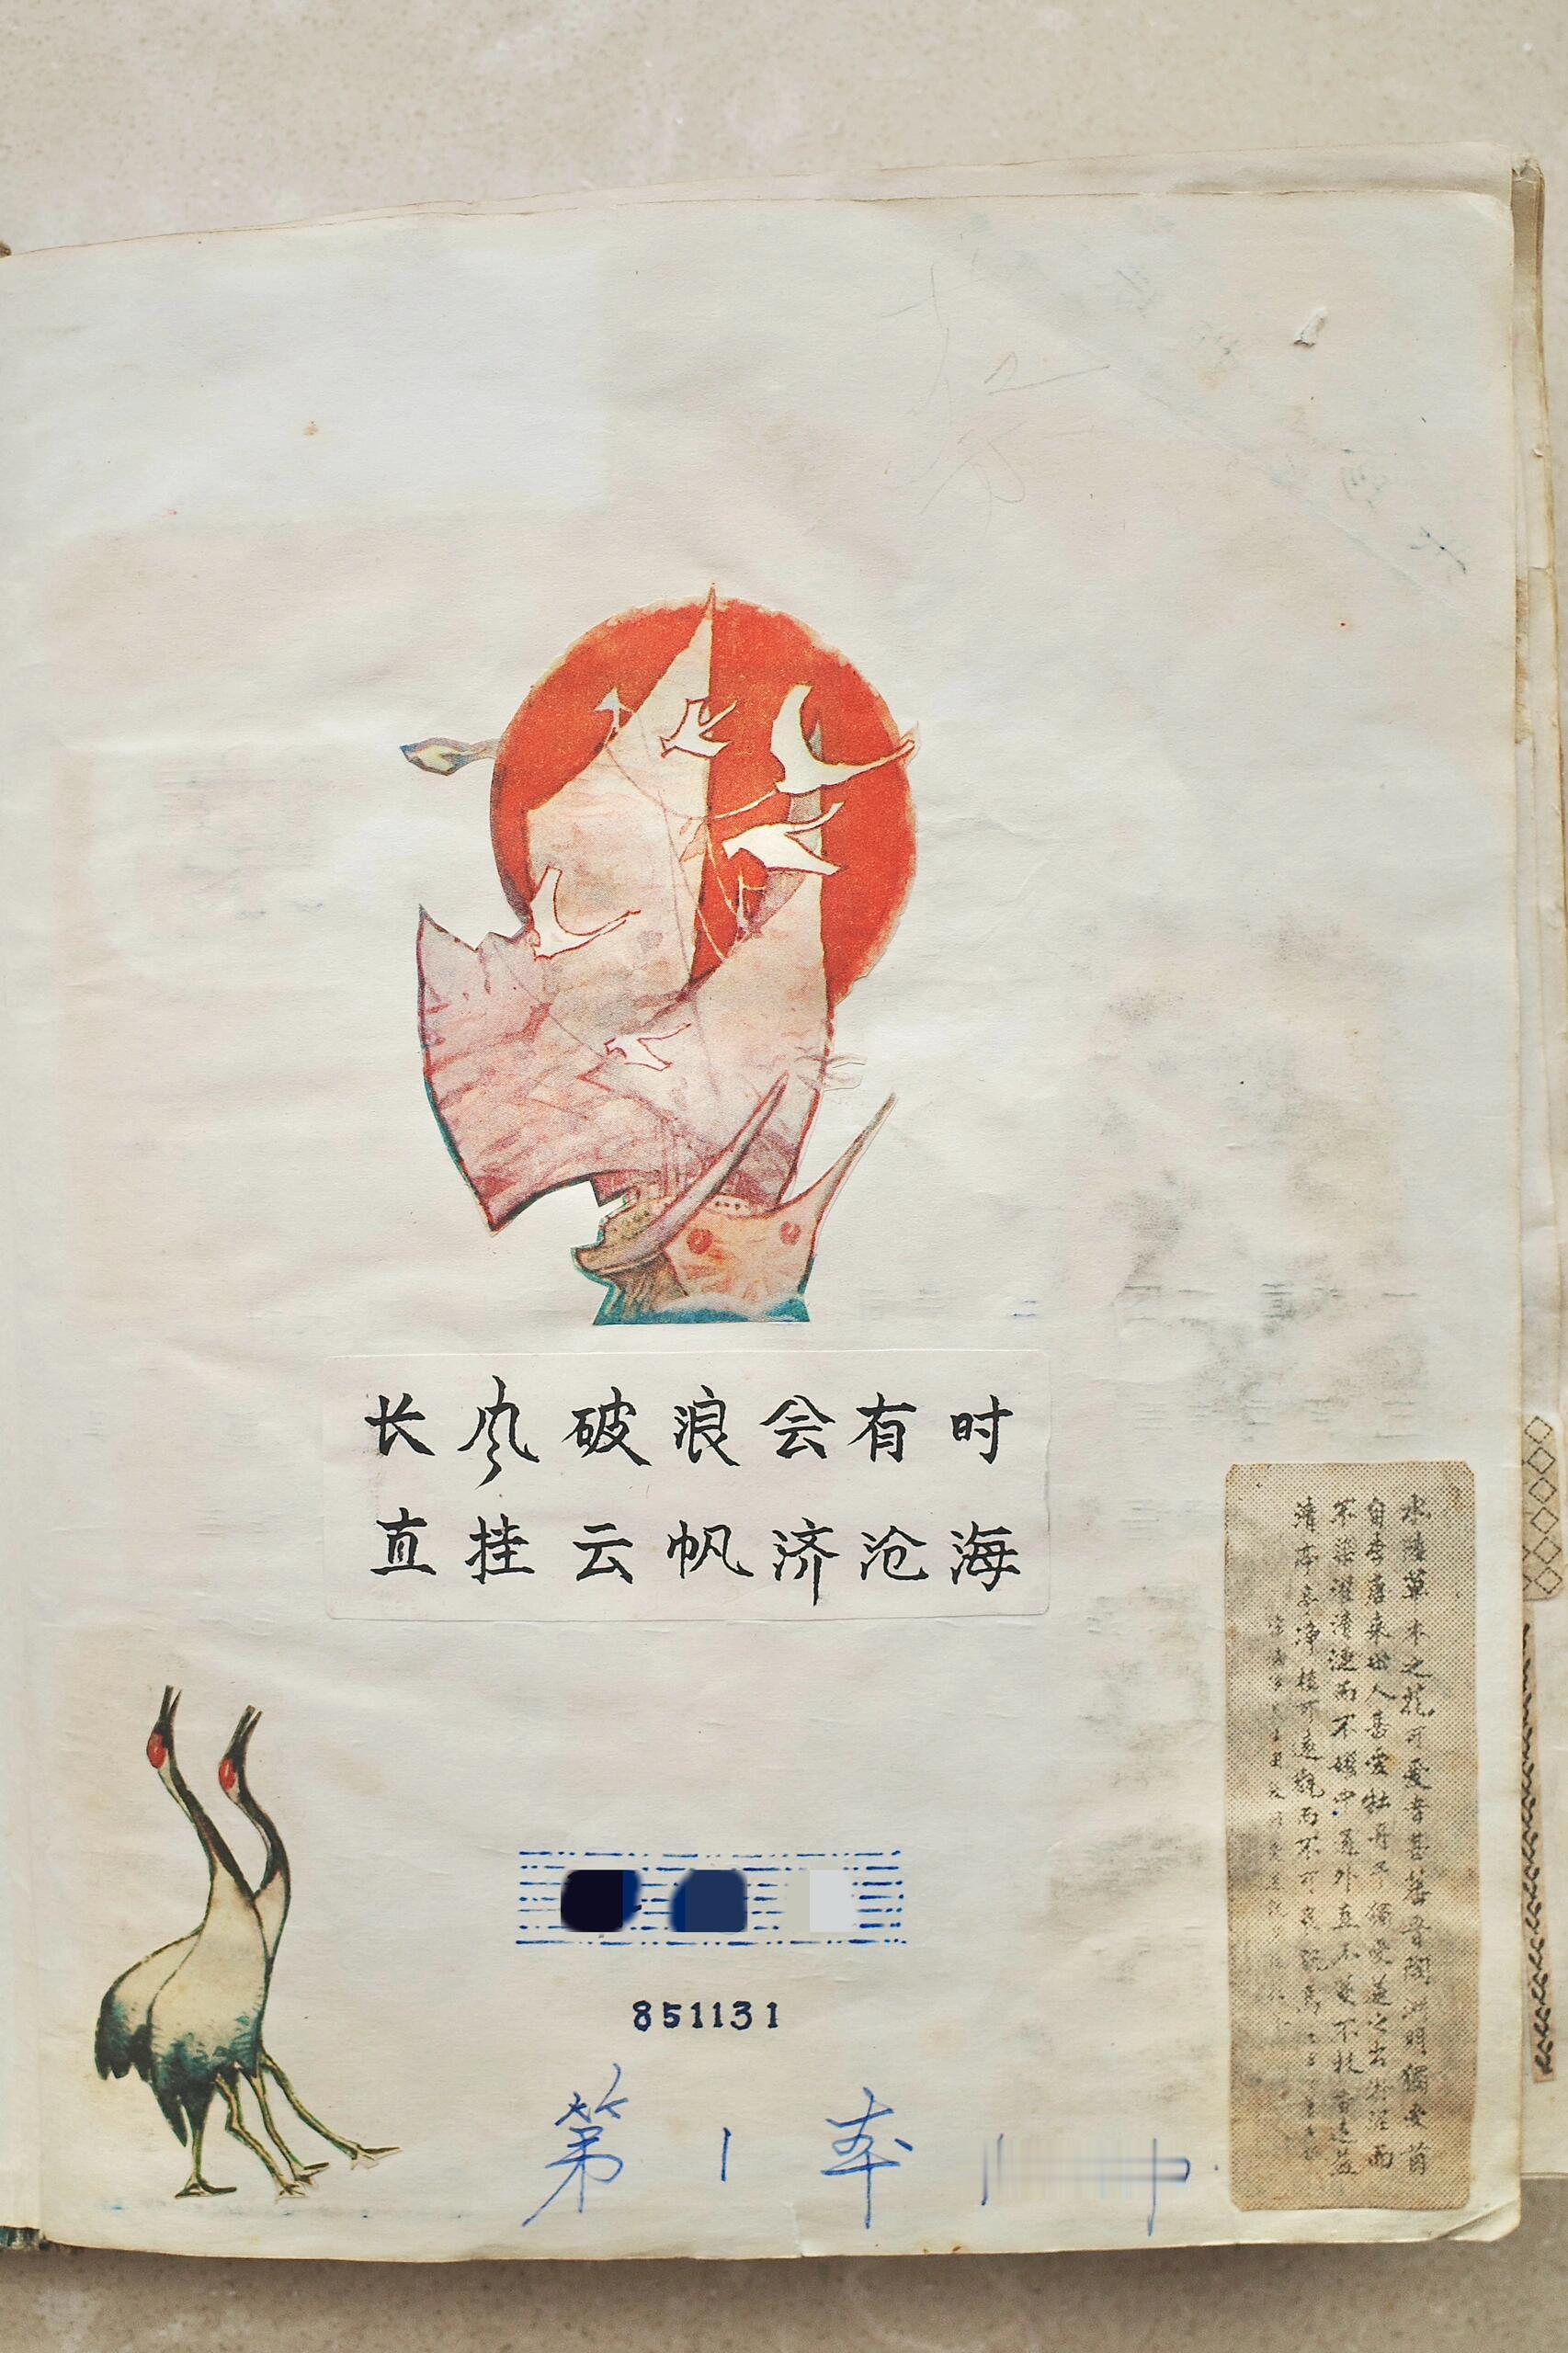 长风破浪会有时
直挂云帆济沧海
水陸草木之花可愛者甚蕃晉陶渊明獨愛菊
自李唐来世人甚愛牡丹予獨愛蓮之出淤泥而
不染濯清漣而不妖中通外直不蔓不枝香遠益
清亭亭淨植可遠觀而不可亵玩焉
851131
第 1 本